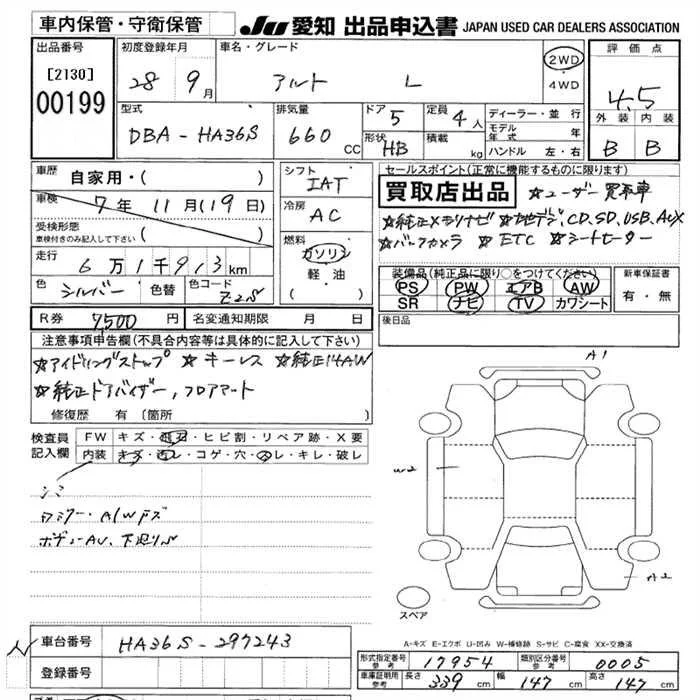 車内保管・守衛保管 JU 愛知 出品申込書 JAPAN USED CAR DEALERS ASSOCIATION
出品番号 初度登録年月 車名・グレード 評価点
[2130] 28 9月 アルト L 2WD ・ 4WD 4.5
00199
型式 排気量 ドア 5 定員 4人 ディーラー・並行 外装 内装
DBA-HA36S 660 CC 形状 HB 積載 kg モデル年式 年 B B
ハンドル 左・右
車歴 自家用・( ) シフト IAT セールスポイント(正常に機能するものに限ります)
車検 7年 11月(19日) 冷房 AC 買取店出品 ☆ユーザー買取車
受検形態 車検付きのみ記入して下さい ( ) ☆純正メモリナビ ☆地デジ CD,SD,USB,AUX
走行 6万1千913km 燃料 ガソリン ・ 軽油 ☆バックカメラ ☆ETC ☆シートヒーター
色 シルバー 色替 色コード Z2S 装備品(純正品に限り○をつけてください) 新車保証書
PS PW エアB AW 有・無
SR ナビ TV カワシート
R券 7,500 円 名変通知期限 月 日 後日品
注意事項申告欄(不具合内容等は具体的に記入して下さい)
☆アイドリングストップ ☆キーレス ☆純正14AW
☆純正ドアバイザー,フロアマット
修復歴 有 (箇所 )
検査員記入欄 FW キズ・飛石・ヒビ割・リペア跡・X要
内装 キズ・汚レ・コゲ・穴・スレ・キレ・破レ
シミ
A1
W2
A2
スペア
A-キズ E-エクボ U-凹み W-補修跡 S-サビ C-腐食 XX-交換済
車台番号 HA36S-297243
登録番号
形式指定番号 参考 17954 類別区分番号 参考 0005
車庫証明用 参考 長さ 339 cm 幅 147 cm 高さ 147 cm